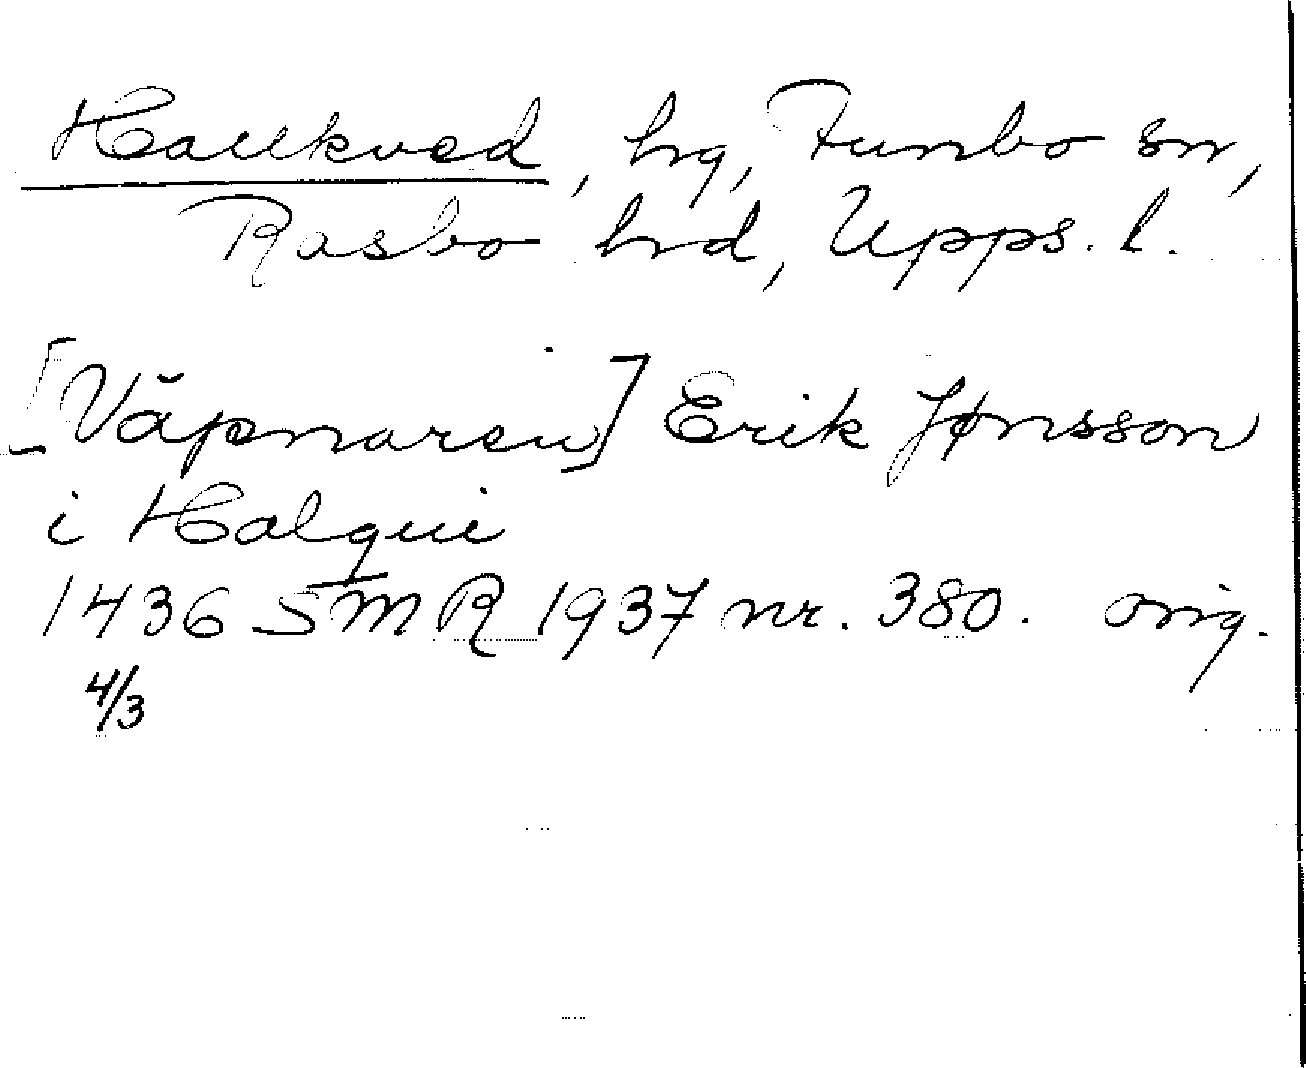 Haukved, hg, Funbo sn,
Rasbo hrd, Upps. l.
[Väpnaren] Erik Jønsson
i Halqui
1436 SMR 1937 nr. 380. orig.
4/3